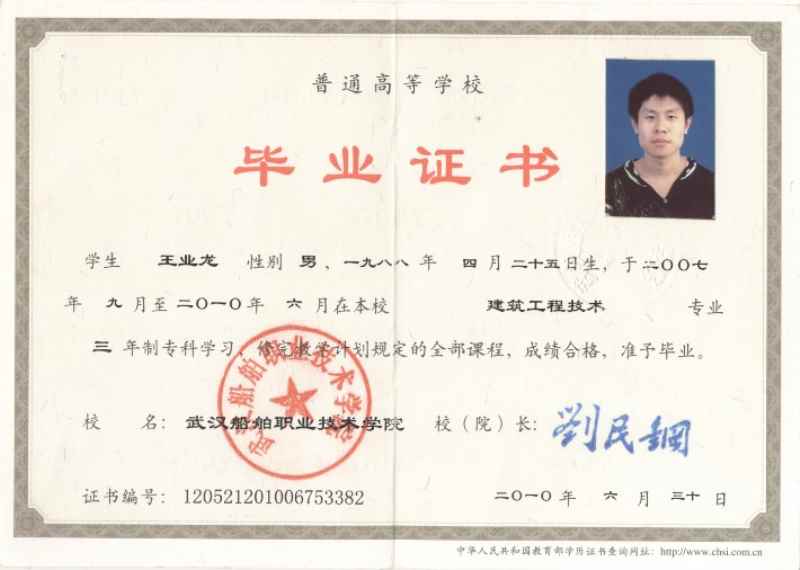 普通高等学校
毕业证书
学生 王业龙 性别 男、一九八八年 四月二十五日生，于二〇〇七
年 九月至二〇一〇年 六月在本校 建筑工程技术 专业
三 年制专科学习，修完教学计划规定的全部课程，成绩合格，准予毕业。
校 名：武汉船舶职业技术学院 校（院）长：劉民鋼
武汉船舶职业技术学院
证书编号：120521201006753382 二〇一〇年 六月 三十日
中华人民共和国教育部学历证书查询网址：http://www.chsi.com.cn